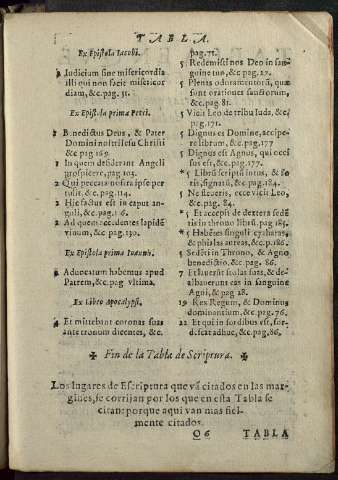 TABLA.
Ex Epistola Iacobi.
2 Iudicium sine misericordia
illi qui non facit misericor
diam, &c pag. 51.
Ex Epistola prima Petri.
Benedictus Deus, & Pater
Domini nostri Iesu Christi
&c pag 169.
In quem desiderant Angeli
prospicere, pag 103.
2 Qui peccata nostra ipse per
tulit. &c pag. 114.
2 Hic factus est in caput an
guli, &c pag. 116.
2 Ad quem accedentes lapidē
viuum, &c pag. 130.
Ex Epistola prima Ioannis.
Aduocatum habemus apud
Patrem, &c pag vltima.
Ex Libro Apocalypsi.
4 Et mittebant coronas suas
ante tronum dicentes, &c.
pag. 71.
5 Redemisti nos Deo in san-
guine tuo, &c pag. 27.
5 Plenis odoramentorū, quæ
sunt orationes sanctorum,
&c pag. 81.
5 Vicit Leo de tribu Iuda, &c,
pag. 171.
5 Dignus es Domine, accipe-
re librum, &c. pag. 177
5 Dignus est Agnus, qui occi
sus est, &c. pag. 177.
*5 Librū scriptū intus, & fo
ris, signatū, &c pag. 184.
5 Ne fleueris, ecce vicit Leo,
&c pag. 84.
*5 Et accepit de dextera sedē
tis in throno librū. pag. 185.
*5 Habētes singuli cytharas,
& phialas aureas, &c p. 186.
5 Sedēti in Throno, & Agno
benedictio, &c. pag. 86.
7 Et lauerūt stolas suas, & de-
albauerunt eas in sanguine
Agni, & pag 28.
19 Rex Regum, & Dominus
dominantium, &c pag. 76.
22 Et qui in sordibus est, sor-
descat adhuc, &c pag, 86.
✠ Fin de la Tabla de Scriptura. ✠
Los lugares de Escriptura que vā citados en las mar-
gines, se corrijan por los que en esta Tabla se
citan: porque aqui van mas fiel-
mente citados.
Q6 TABLA